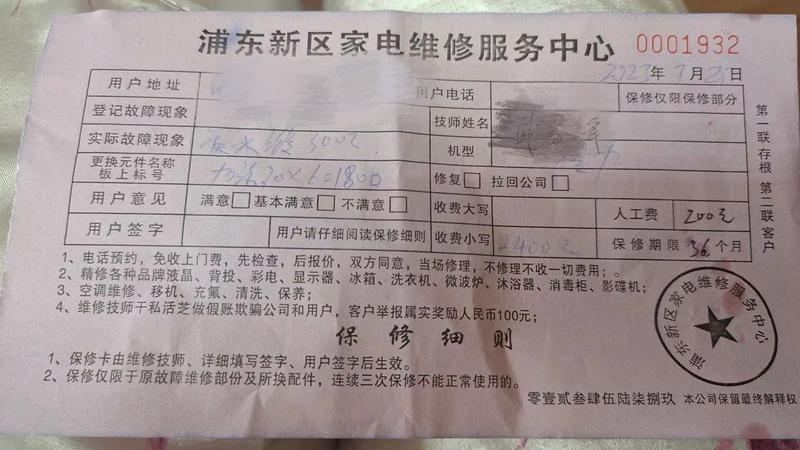 浦东新区家电维修服务中心 0001932
2023年7月25日
用户地址 用户电话 保修仅限保修部分
登记故障现象 技师姓名
实际故障现象 300元 机型
更换元件名称 板上标号 30×6=1800 修复□ 拉回公司□
用户意见 满意□ 基本满意□ 不满意□ 收费大写 人工费 200元
用户签字 用户请仔细阅读保修细则 收费小写 2400元 保修期限 36个月
第一联存根 第二联客户
1、电话预约,免收上门费,先检查,后报价,双方同意,当场修理,不修理不收一切费用;。
2、精修各种品牌液晶、背投、彩电、显示器、冰箱、洗衣机、微波炉、沐浴器、消毒柜、影碟机;
3、空调维修、移机、充氟、清洗、保养;
4、维修技师干私活芝做假账欺骗公司和用户,客户举报属实奖励人民币100元;
保修细则
1、保修卡由维修技师、详细填写签字、用户签字后生效。
2、保修仅限于原故障维修部份及所换配件,连续三次保修不能正常使用的。
浦东新区家电维修服务中心
零壹贰叁肆伍陆柒捌玖 本公司保留最终解释权